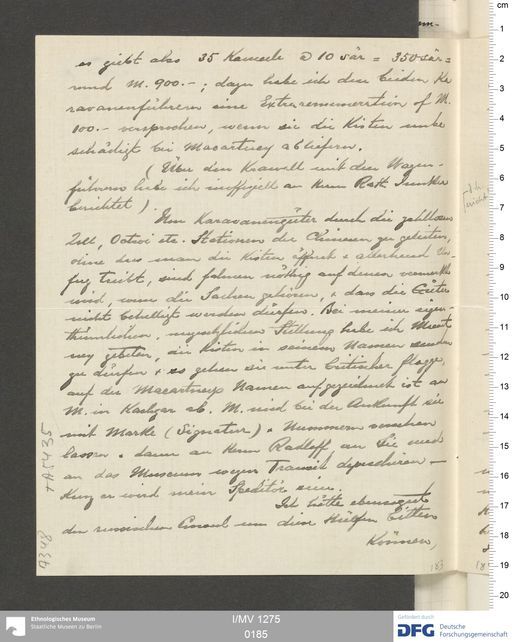 es giebt also 35 Kameele @ 10 sär = 350 sär =
rund M. 900.- ; dazu habe ich den beiden Ka
ravanenführern eine Extraremuneration of M.
100.- versprochen, wenn sie die Kisten unbe
schädigt bei Macartney abliefern.
( Über den Krawall mit den Wagen-
führern habe ich inoffiziell an Herrn Rath Junker
berichtet ).
Um Karavanengüter durch die zahllosen
Zoll, Octroi etc. Stationen der Chinesen zu geleiten,
ohne dass man die Kisten öffnet & allerhand Un-
fug treibt, sind Fahnen nöthig auf denen vermerkt
wird, wem die Sachen gehören, & dass die Güter
nicht behelligt werden dürfen. Bei meiner eigen-
thümlichen, Stellung habe ich
gebeten, die Kisten in seinem Namen senden
zu dürfen & so gehen sie unter britischer Flagge,
auf der Macartneys Namen aufgezeichnet ist an
M. in Kashgar ab. M. wird bei der Ankunft sie
mit Marke (Signatur) & Nummern versehen
lassen & dann an Herrn Radloff, an Sie und
an das Museum wegen Transit depeschieren —
Kurz er wird mein Speditör sein.
Ich hätte ebensogut
den russischen Consul um diese Hülfe bitten
können,
183
I/MV 1275
0185
Ethnologisches Museum
Staatliche Museen zu Berlin
Gefördert durch
DFG
Deutsche
Forschungsgemeinschaft
cm
1
2
3
4
5
6
7
8
9
10
11
12
13
14
15
16
17
18
19
20